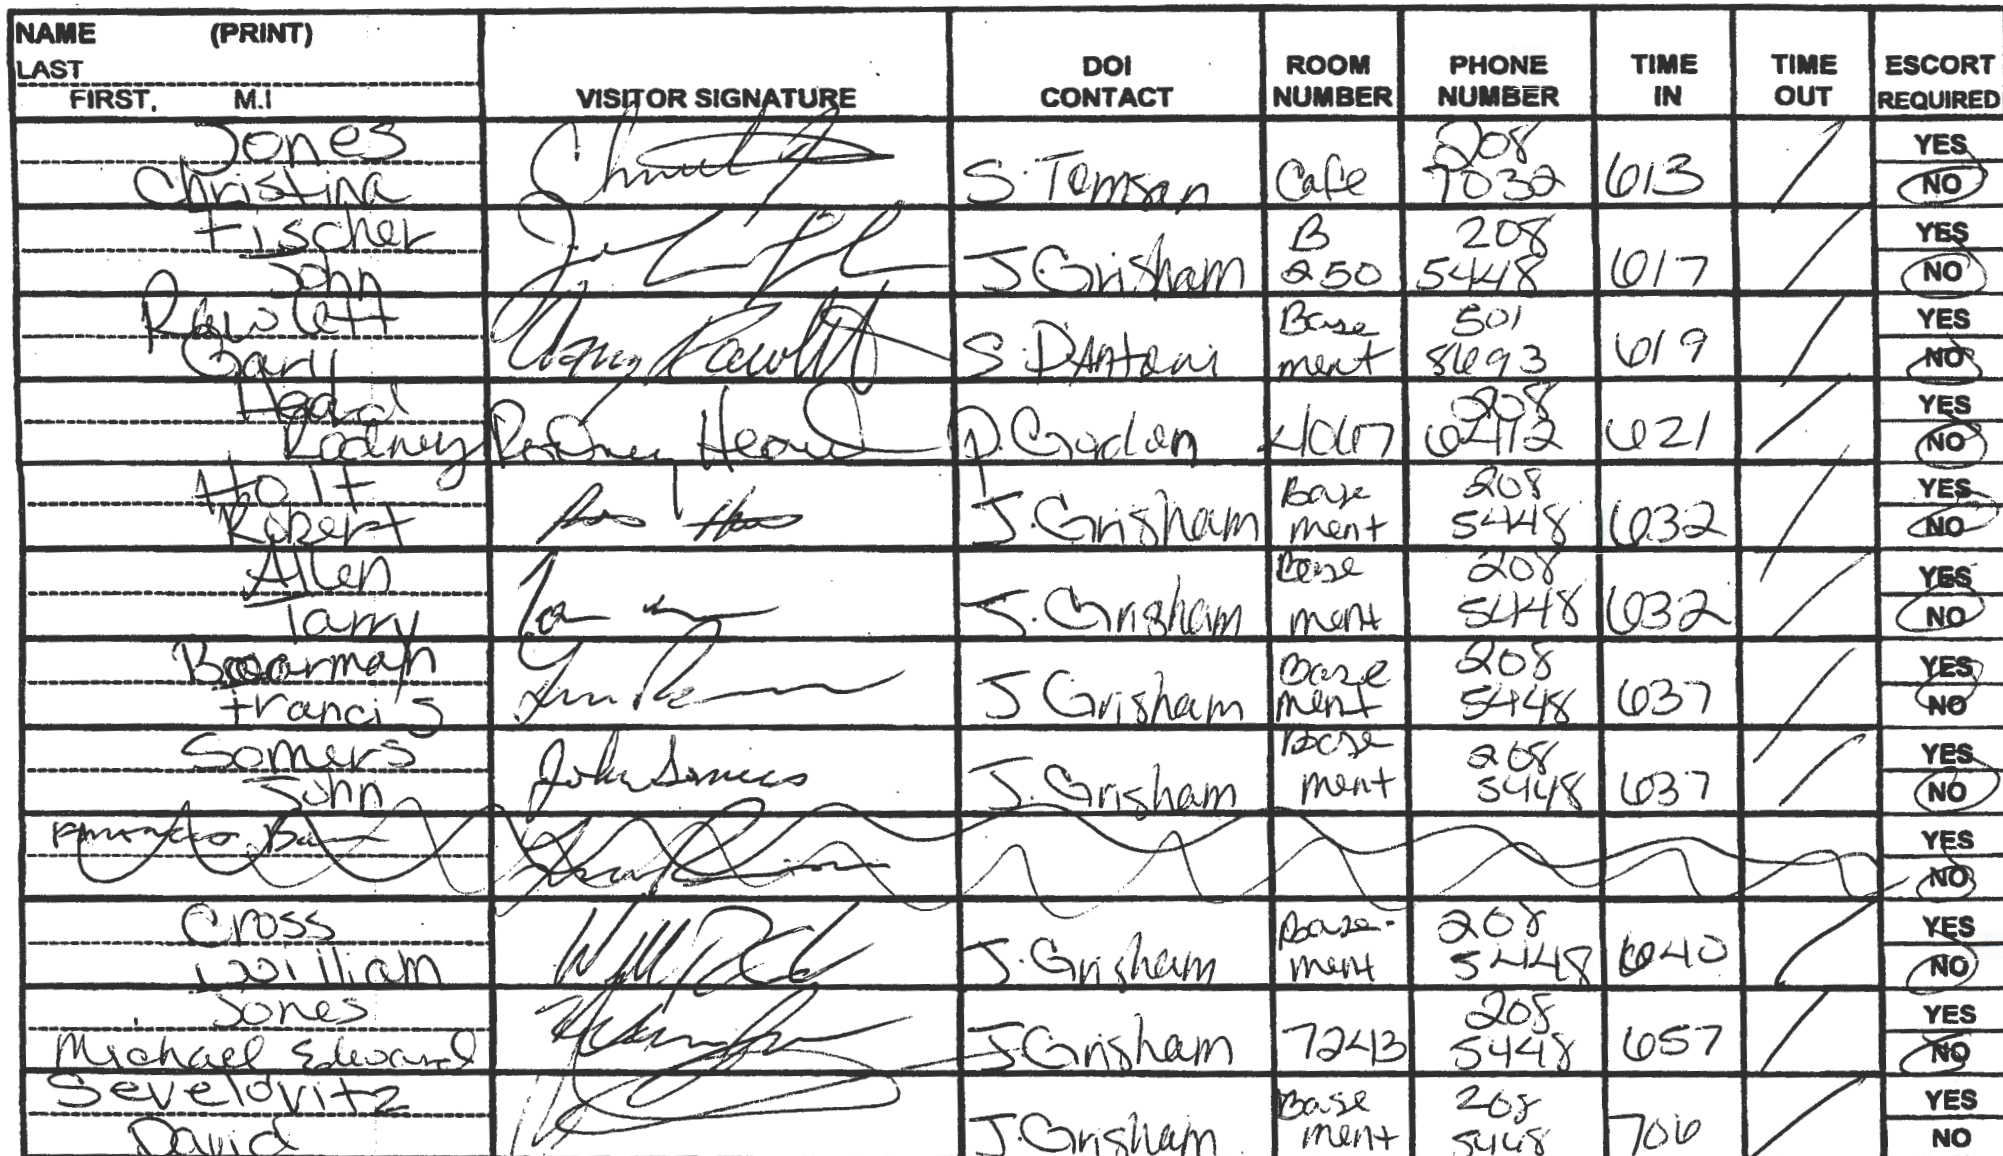 NAME (PRINT)
LAST
FIRST, M.I
VISITOR SIGNATURE
DOI
CONTACT
ROOM
NUMBER
PHONE
NUMBER
TIME
IN
TIME
OUT
ESCORT
REQUIRED
Jones
Christina
S. Tomsan
Cafe
208
7032
613
YES
NO
Fischer
John
J. Grisham
B
250
208
5448
617
YES
NO
Rawlett
Gary
Gary Rawlett
S. DAntoni
Base
ment
501
8693
619
YES
NO
Head
Rodney
Rodney Head
D.
208
621
YES
NO
Holt
Robert
J. Grisham
Base
ment
208
5448
632
YES
NO
Allen
Tarry
J. Grisham
Base
ment
208
5448
632
YES
NO
Boarman
Francis
J Grisham
Base
ment
208
5448
637
YES
NO
Somers
John
John Somers
J. Grisham
Base
ment
208
5448
637
YES
NO
YES
NO
Cross
William
J. Grisham
Base-
ment
208
5448
640
YES
NO
Jones
Michael Edward
J Grisham
7243
208
5448
657
YES
NO
Seveldvitz
David
J. Grisham
Base
ment
208
5448
706
YES
NO